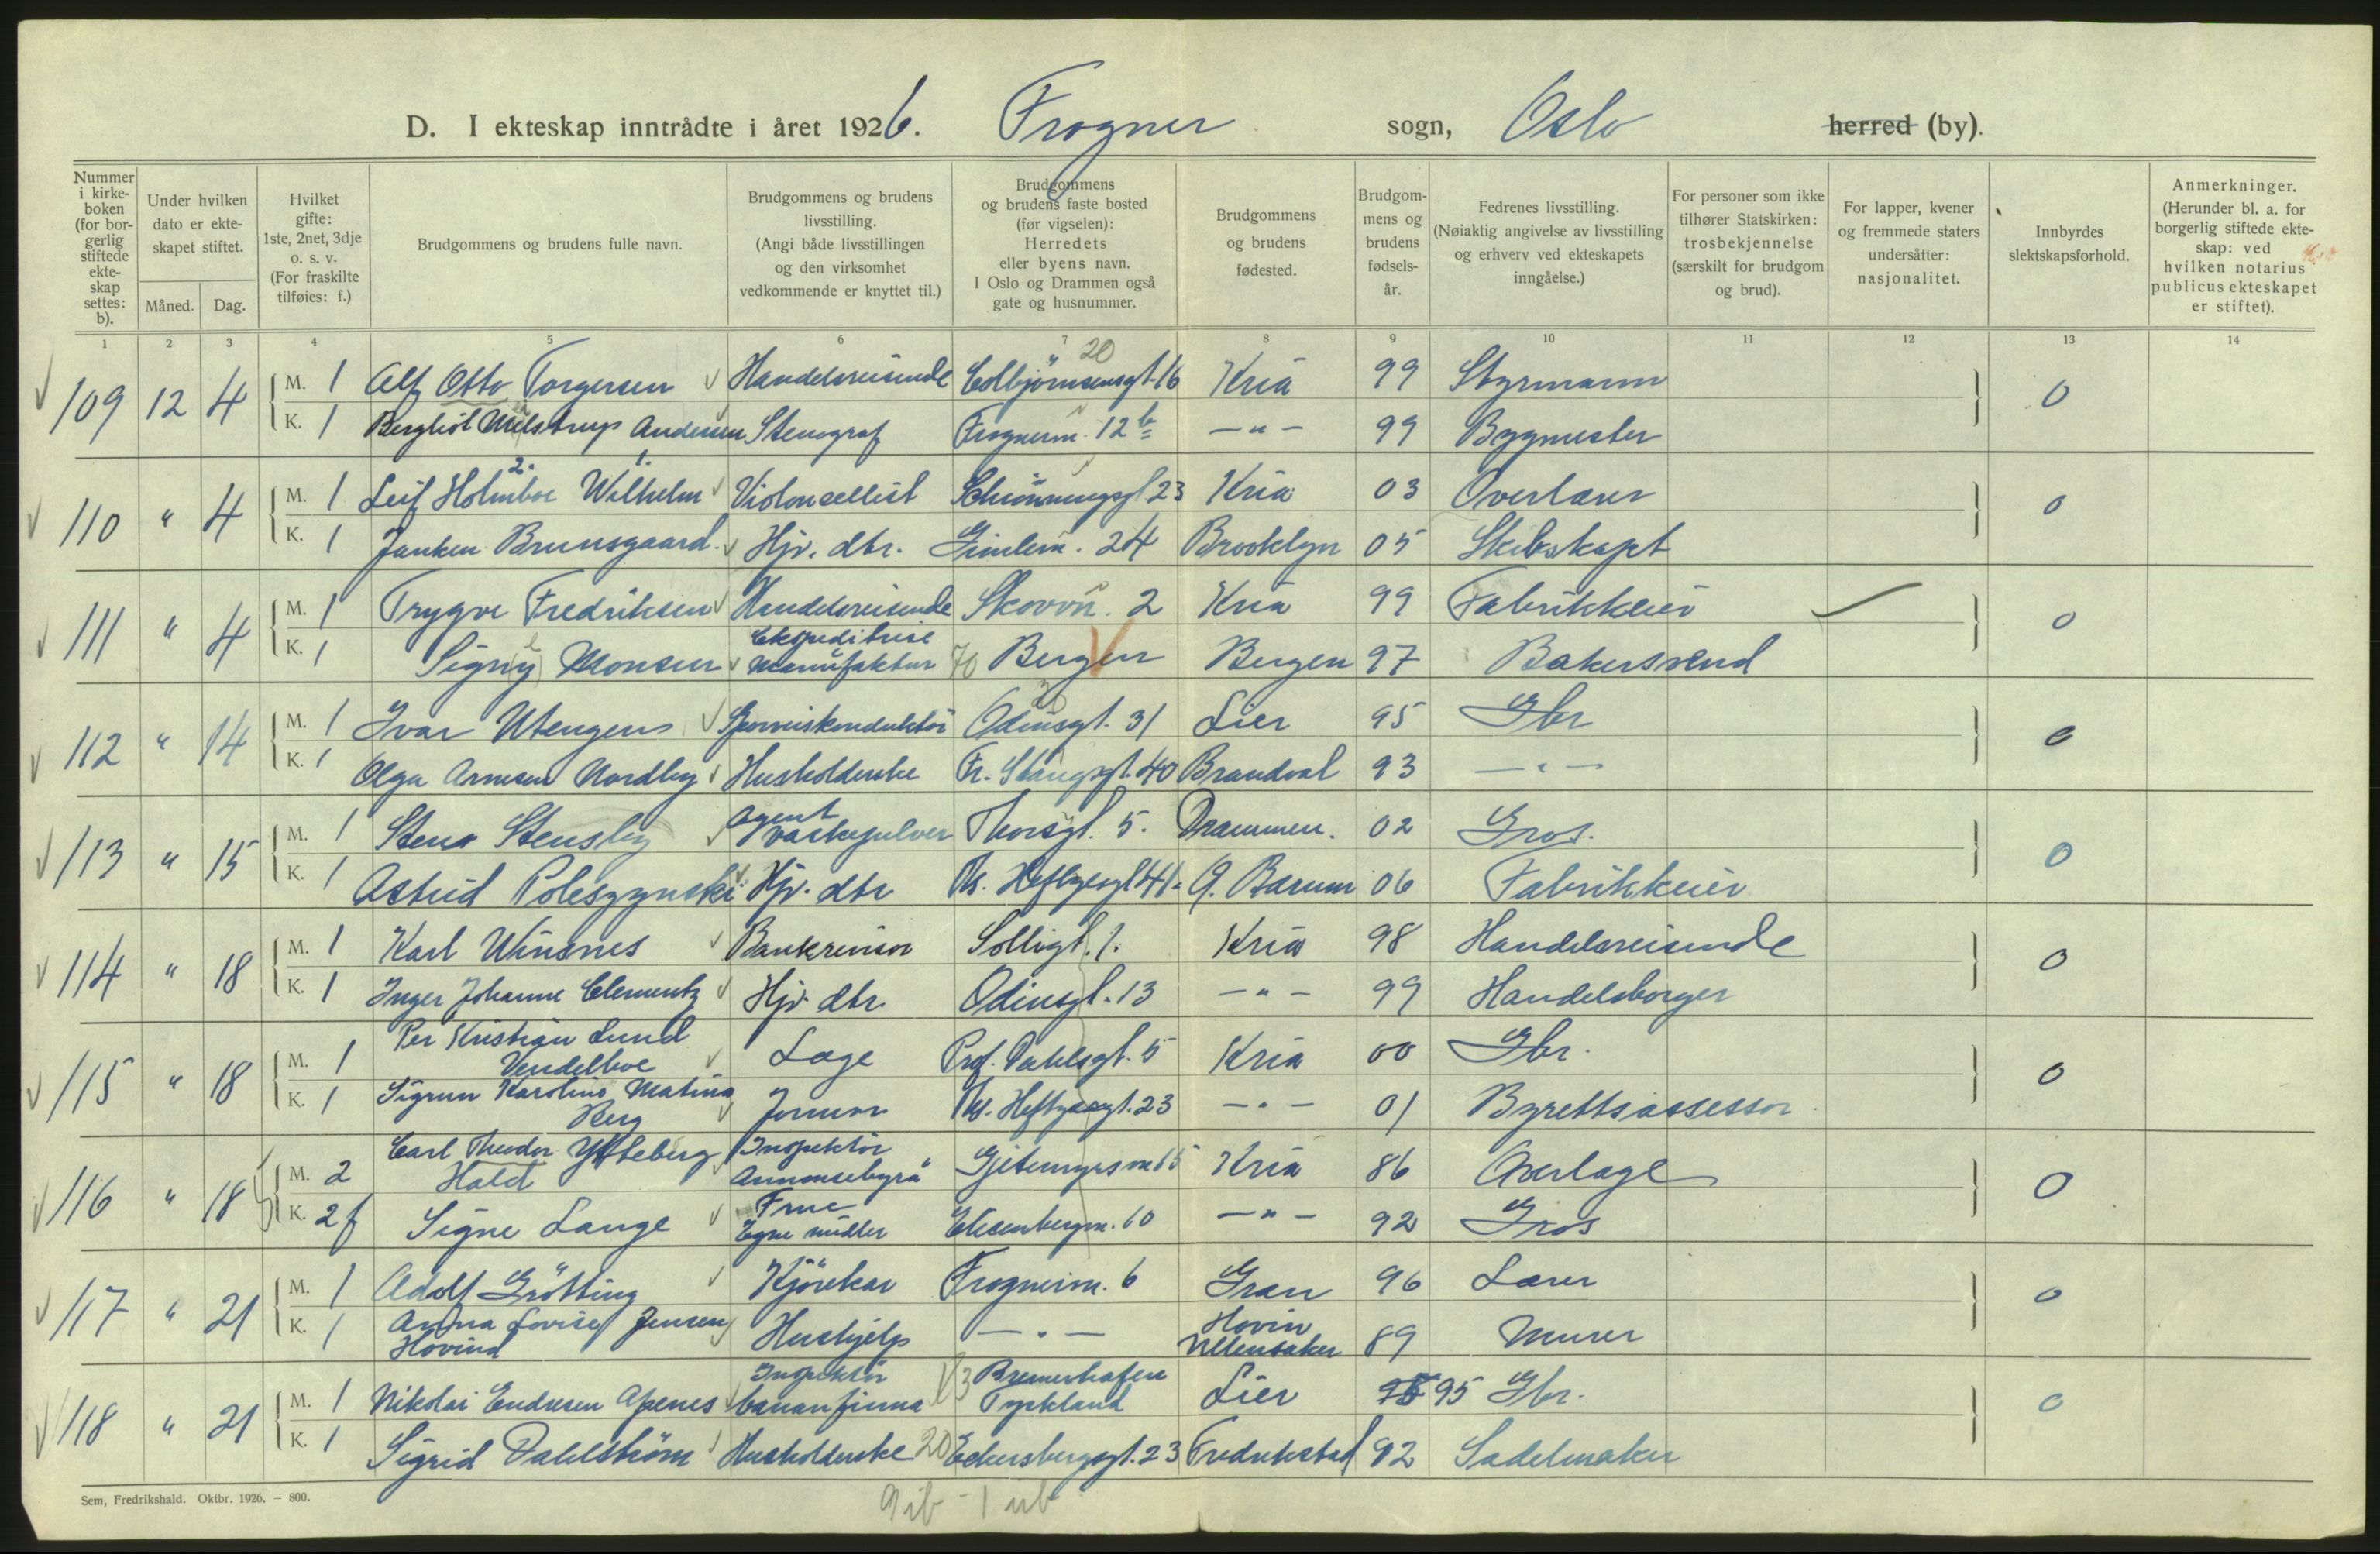 D. I ekteskap inntrådte i året 1926. Frogner sogn, Oslo herred (by).
Nummer i kirkeboken (for borgerlig stiftede ekteskap settes: b).
Under hvilken dato er ekteskapet stiftet.
Måned. Dag.
Hvilket gifte: 1ste, 2net, 3dje o. s. v. (For fraskilte tilføies: f.)
Brudgommens og brudens fulle navn.
Brudgommens og brudens livsstilling. (Angi både livsstillingen og den virksomhet vedkommende er knyttet til.)
Brudgommens og brudens faste bosted (før vigselen): Herredets eller byens navn. I Oslo og Drammen også gate og husnummer.
Brudgommens og brudens fødested.
Brudgommens og brudens fødselsår.
Fedrenes livsstilling. (Nøiaktig angivelse av livsstilling og erhverv ved ekteskapets inngåelse.)
For personer som ikke tilhører Statskirken: trosbekjennelse (særskilt for brudgom og brud).
For lapper, kvener og fremmede staters undersåtter: nasjonalitet.
Innbyrdes slektskapsforhold.
Anmerkninger. (Herunder bl. a. for borgerlig stiftede ekteskap: ved hvilken notarius publicus ekteskapet er stiftet).
1 2 3 4 5 6 7 8 9 10 11 12 13 14
20
109 12 4 M. 1 Alf Otto Torgersen Handelsreisende Colbjörnsensgt. 16 Kria 99 Styrmann 0
K. 1 Bergliot Andersen Stenograf Frognerv. 12 b — " — 99 Bygmester
2. 1.
110 " 4 M. 1 Leif Holmboe Wilhelm Violoncellist Schiönningsgt 23 Kria 03 Overlærer 0
K. 1 Janken Brunsgaard. Hjv. dtr. Gimlem. 24 Brooklyn 05 Skibskapt
111 " 4 M. 1 Trygve Fredriksen Handelsreisende Skovv. 2 Kria 99 Fabrikkeier 0
K. 1 Signy Monsen Ekspeditrise manufaktur 70 Bergen Bergen 97 Bakersvend
112 " 14 M. 1 Ivar Utengen Sporveiskonduktör Odinsgt. 31 Lier 95 Gbr 0
K. 1 Olga Arnesen Nordby Husholderske Fr. Stangsgt. 40 Brandval 93 — " —
113 " 15 M. 1 Stena Stensby Agent vaskepulver Thorsgt. 5. Drammen. 02 Gros. 0
K. 1 Astrid Poleszynski Hjv. dtr Th. Heftyesgt 41. Ø. Bærum 06 Fabrikkeier
114 " 18 M. 1 Karl Winsnes Bankrevisor Solligt. 1. Kria 98 Handelsreisende 0
K. 1 Inger Johanne Clementz Hjv. dtr. Odinsgt. 13 — " — 99 Handelsborger
115 " 18 M. 1 Per Kristian Lund Vendelboe Læge Prof. Dahlsgt. 5 Kria 00 Gbr. 0
K. 1 Sigrun Karoline Matina Berg Th. Heftyesgt. 23 — " — 01 Byrettsassessor
116 " 18 M. 2 Carl Theodor Ytteberg Hald Inspektör Annonsebyrå Gjetemyrsv. 15 Kria 86 Overlæge 0
K. 2 f Signe Lange Frue Egne midler Elisenbergv. 10 — " — 92 Gros
117 " 21 M. 1 Adolf Grötting Kjörekar Frognerv. 6 Gran 96 Lærer 0
K. 1 Anna Lovise Jensen Hovind Hushjelp — " — Hovin Ullensaker 89 Murer
118 " 21 M. 1 Nikolai Endresen Apenes Inspektör bananfirma 83 Bremerhafen Tyskland Lier 95 Gbr. 0
K. 1 Sigrid Dahlström Husholderske 20 Eckersbergsgt. 23 Fredrikstad 92 Sadelmaker
Sem, Fredrikshald. Oktbr. 1926. – 800.
9 ib - 1 ub